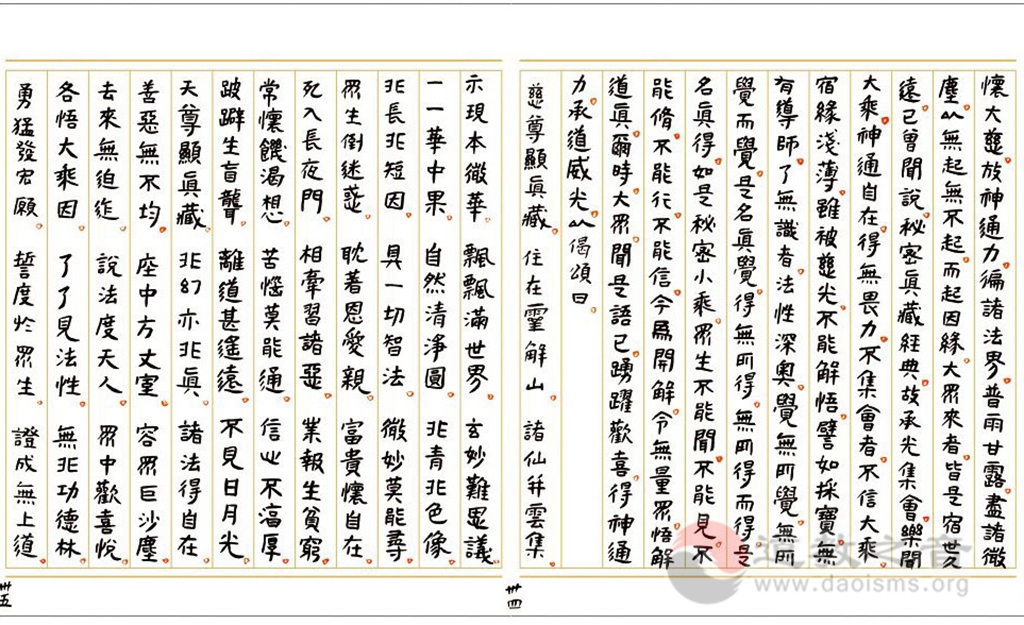 懷大慈放神通力徧諸法界普雨甘露盡諸微
塵以無起無不起而起因緣大眾來者皆是宿世久
遠已曾聞說秘密真藏經典故承光集會樂聞
大乘神通自在得無畏力不集會者不信大乘
宿緣淺薄雖被慈光不能解悟譬如採寶無
有導師了無識者法性深奧覺無所覺無所
覺而覺是名真覺得無所得無所得而得是
名真得如是秘密小乘眾生不能聞不能見不
能脩不能行不能信今為開解令無量眾悟解
道真爾時大眾聞是語已踴躍歡喜得神通
力承道威光以偈頌曰
慈尊顯真藏 住在靈解山 諸仙並雲集
卅四
示現本微華 飄飄滿世界 玄妙難思議
一一華中果 自然清淨圓 非青非色像
非長非短因 具一切智法 微妙莫能尋
眾生倒迷惑 耽著恩愛親 富貴懷自在
死入長夜門 相牽習諸惡 業報生貧窮
常懷饑渴想 苦惱莫能通 信心不濇厚
跛躃生盲聾 離道甚遙遠 不見日月光
天尊顯真藏 非幻亦非真 諸法得自在
善惡無不均 座中方丈室 容眾巨沙塵
去來無迫迮 說法度天人 眾中歡喜悅
各悟大乘因 了了見法性 無非功德林
勇猛發宏願 誓度於眾生 證成無上道
卅五
道教之音
www.daoisms.org